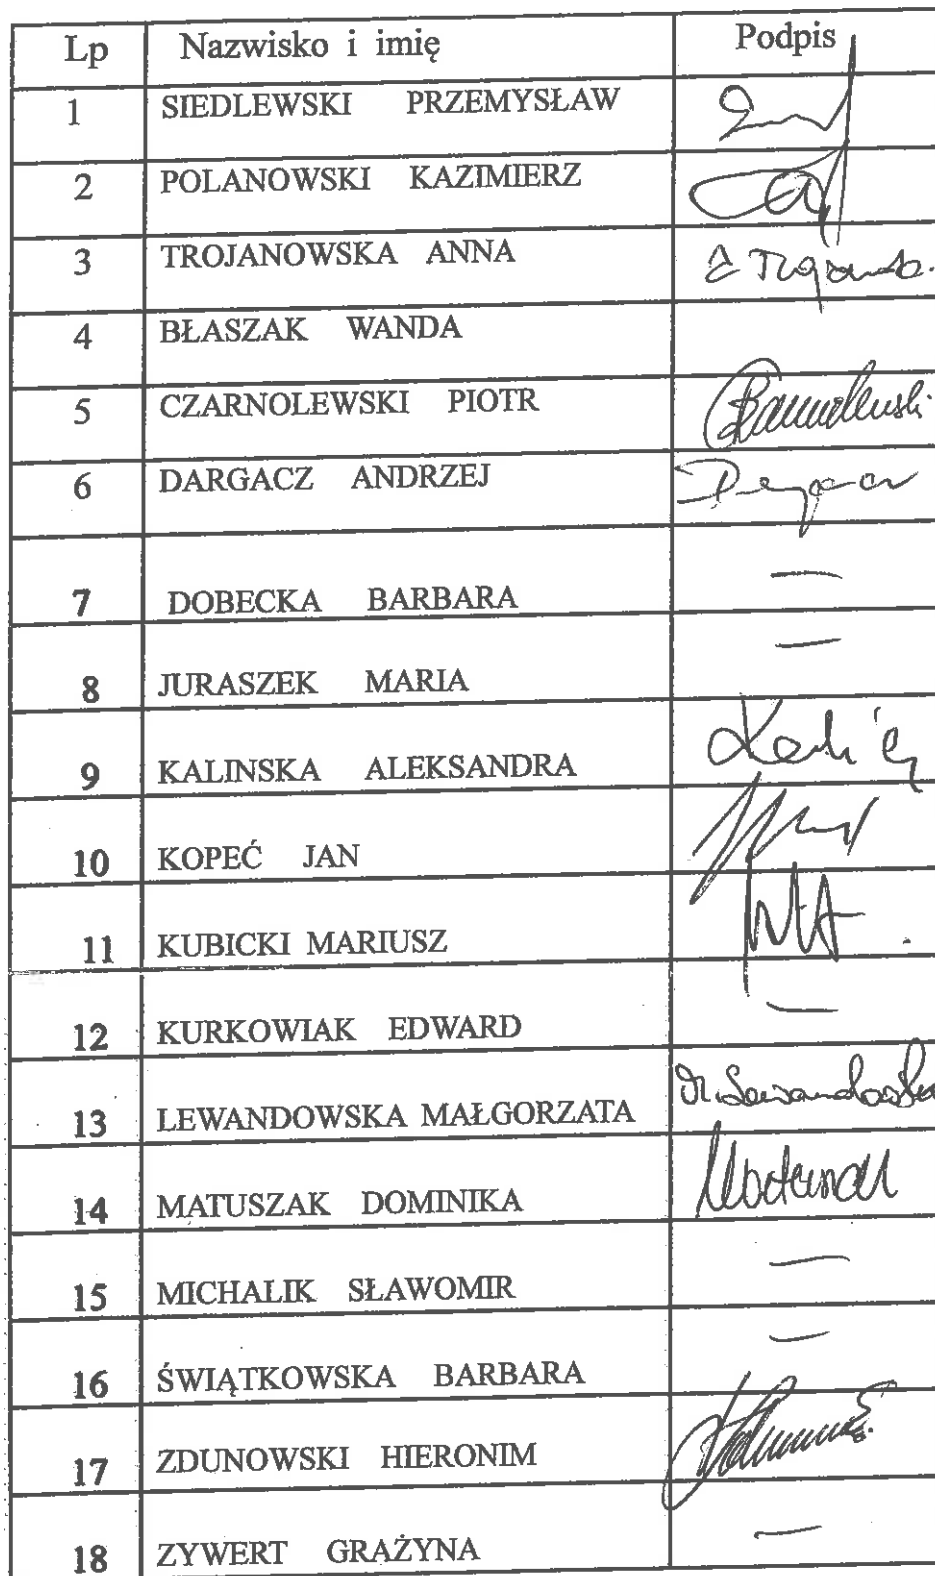 Lp Nazwisko i imię Podpis
1 SIEDLEWSKI PRZEMYSŁAW
2 POLANOWSKI KAZIMIERZ
3 TROJANOWSKA ANNA
4 BŁASZAK WANDA
5 CZARNOLEWSKI PIOTR
6 DARGACZ ANDRZEJ
7 DOBECKA BARBARA —
8 JURASZEK MARIA —
9 KALINSKA ALEKSANDRA
10 KOPEĆ JAN
11 KUBICKI MARIUSZ
12 KURKOWIAK EDWARD —
13 LEWANDOWSKA MAŁGORZATA M. Lewandowska
14 MATUSZAK DOMINIKA
15 MICHALIK SŁAWOMIR —
16 ŚWIĄTKOWSKA BARBARA —
17 ZDUNOWSKI HIERONIM
18 ZYWERT GRAŻYNA —